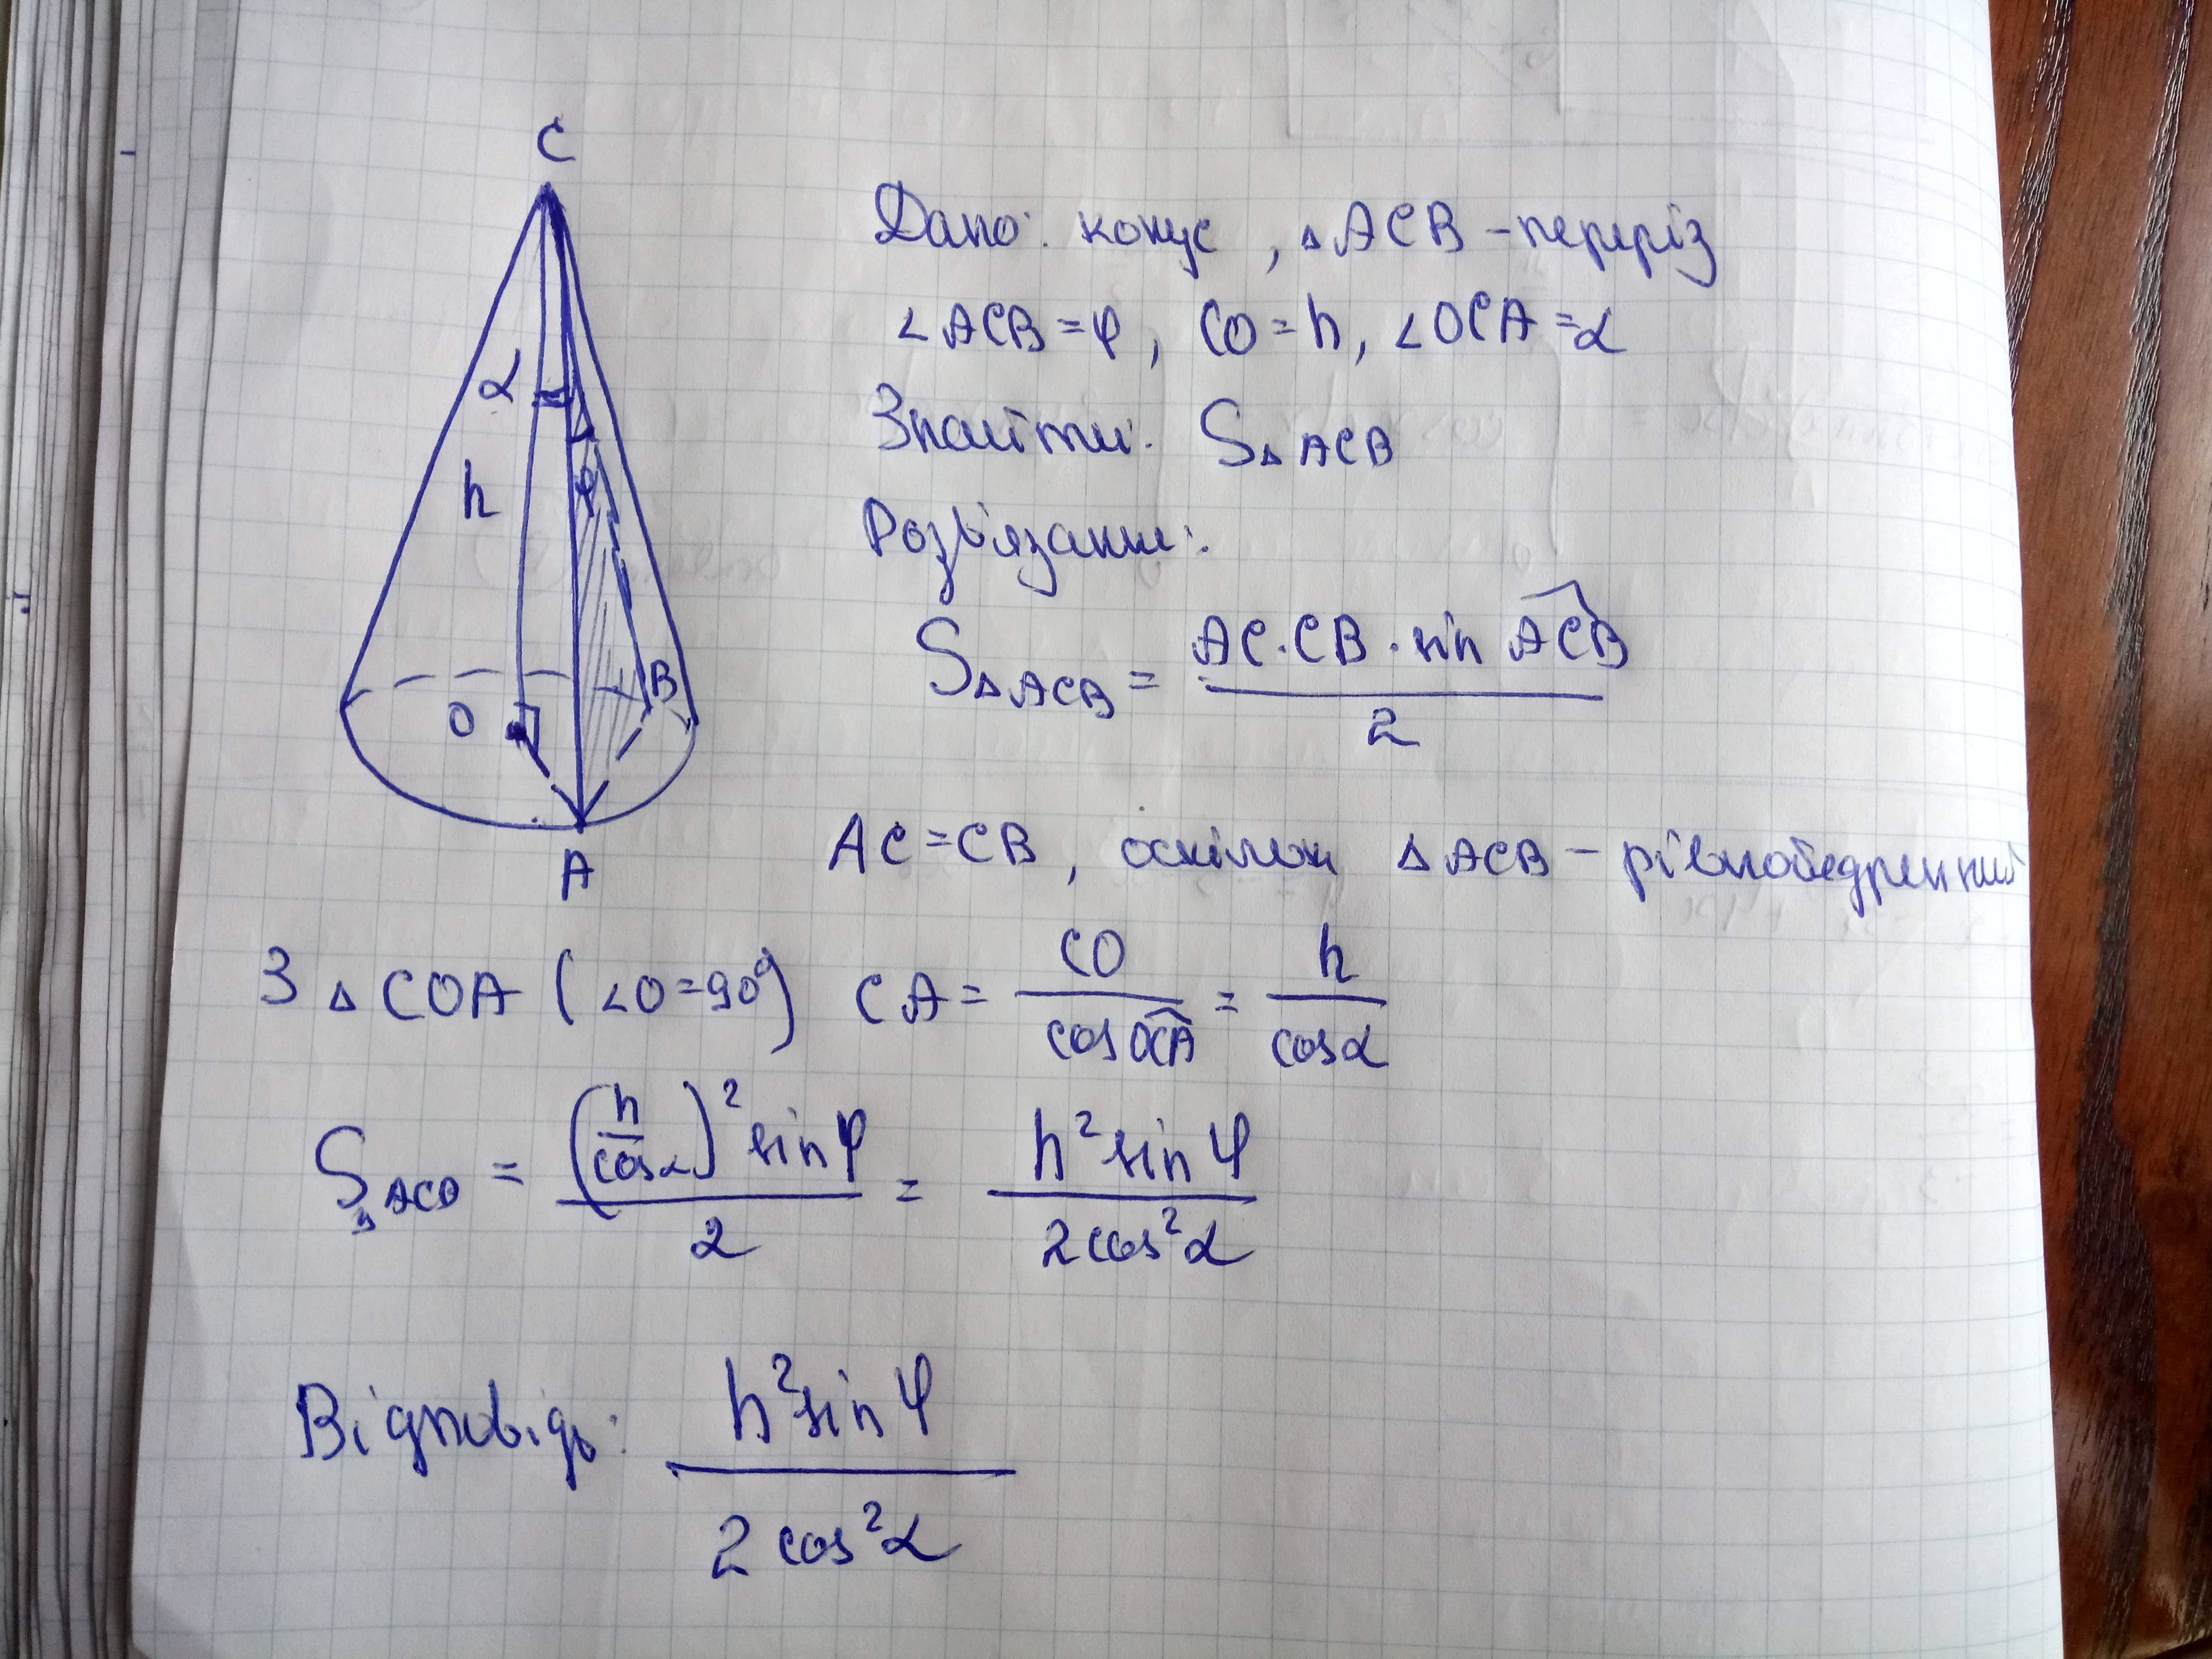 C
α
h
φ
O
B
A
Дано: конус, △ACB – переріз
∠ACB = φ, CO = h, ∠OCA = α
Знайти: S△ACB
Розв'язання:
S△ACB = (AC · CB · sin ACB) / 2
AC = CB, оскільки △ACB – рівнобедренний
З △COA (∠O = 90°) CA = CO / cos OCA = h / cos α
S△ACB = (h / cos α)² sin φ / 2 = h² sin φ / 2 cos² α
Відповідь: h² sin φ / 2 cos² α